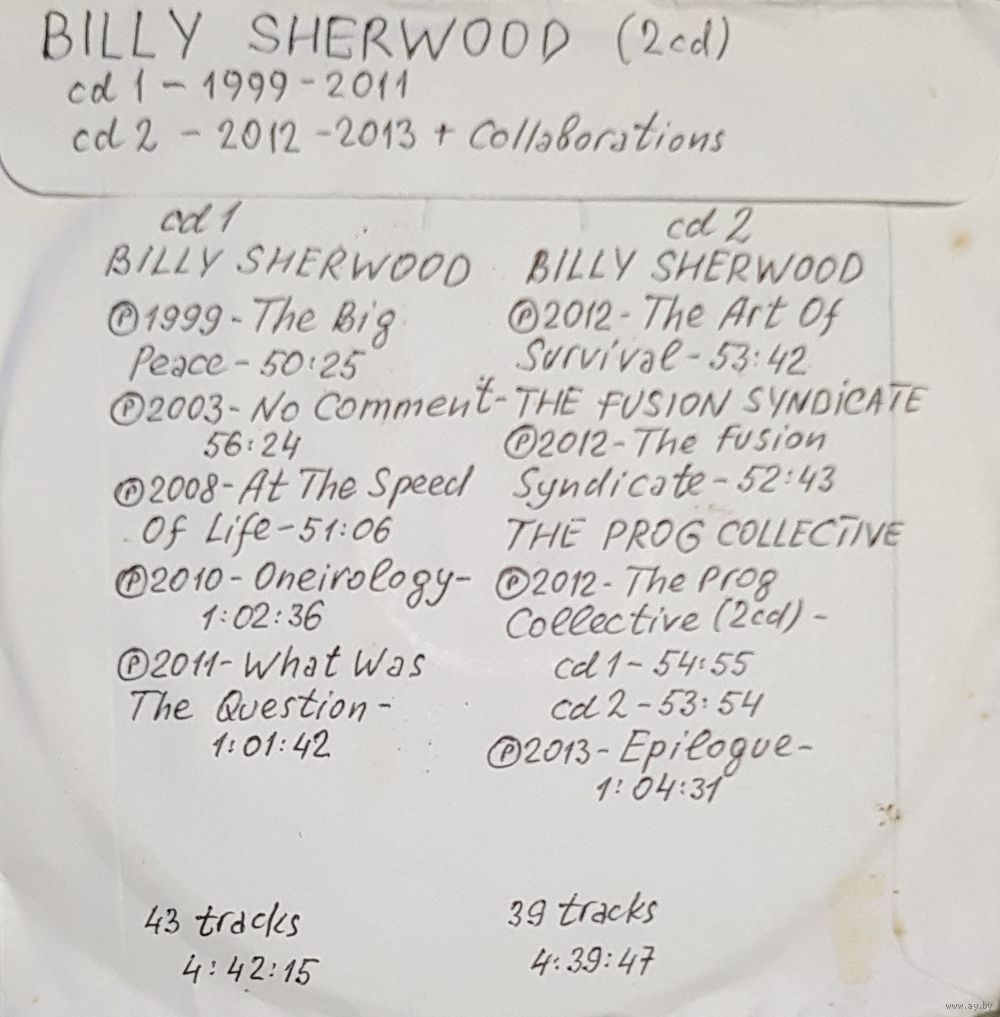 BILLY SHERWOOD (2cd)
cd 1 - 1999 - 2011
cd 2 - 2012 - 2013 + Collaborations
cd 1
BILLY SHERWOOD
Ⓟ1999 - The Big
Peace - 50:25
Ⓟ2003 - No Comment -
56:24
Ⓟ2008 - At The Speed
Of Life - 51:06
Ⓟ2010 - Oneirology -
1:02:36
Ⓟ2011 - What Was
The Question -
1:01:42
43 tracks
4:42:15
cd 2
BILLY SHERWOOD
Ⓟ2012 - The Art Of
Survival - 53:42
THE FUSION SYNDICATE
Ⓟ2012 - The Fusion
Syndicate - 52:43
THE PROG COLLECTIVE
Ⓟ2012 - The Prog
Collective (2cd) -
cd 1 - 54:55
cd 2 - 53:54
Ⓟ2013 - Epilogue -
1:04:31
39 tracks
4:39:47
www.ay.by